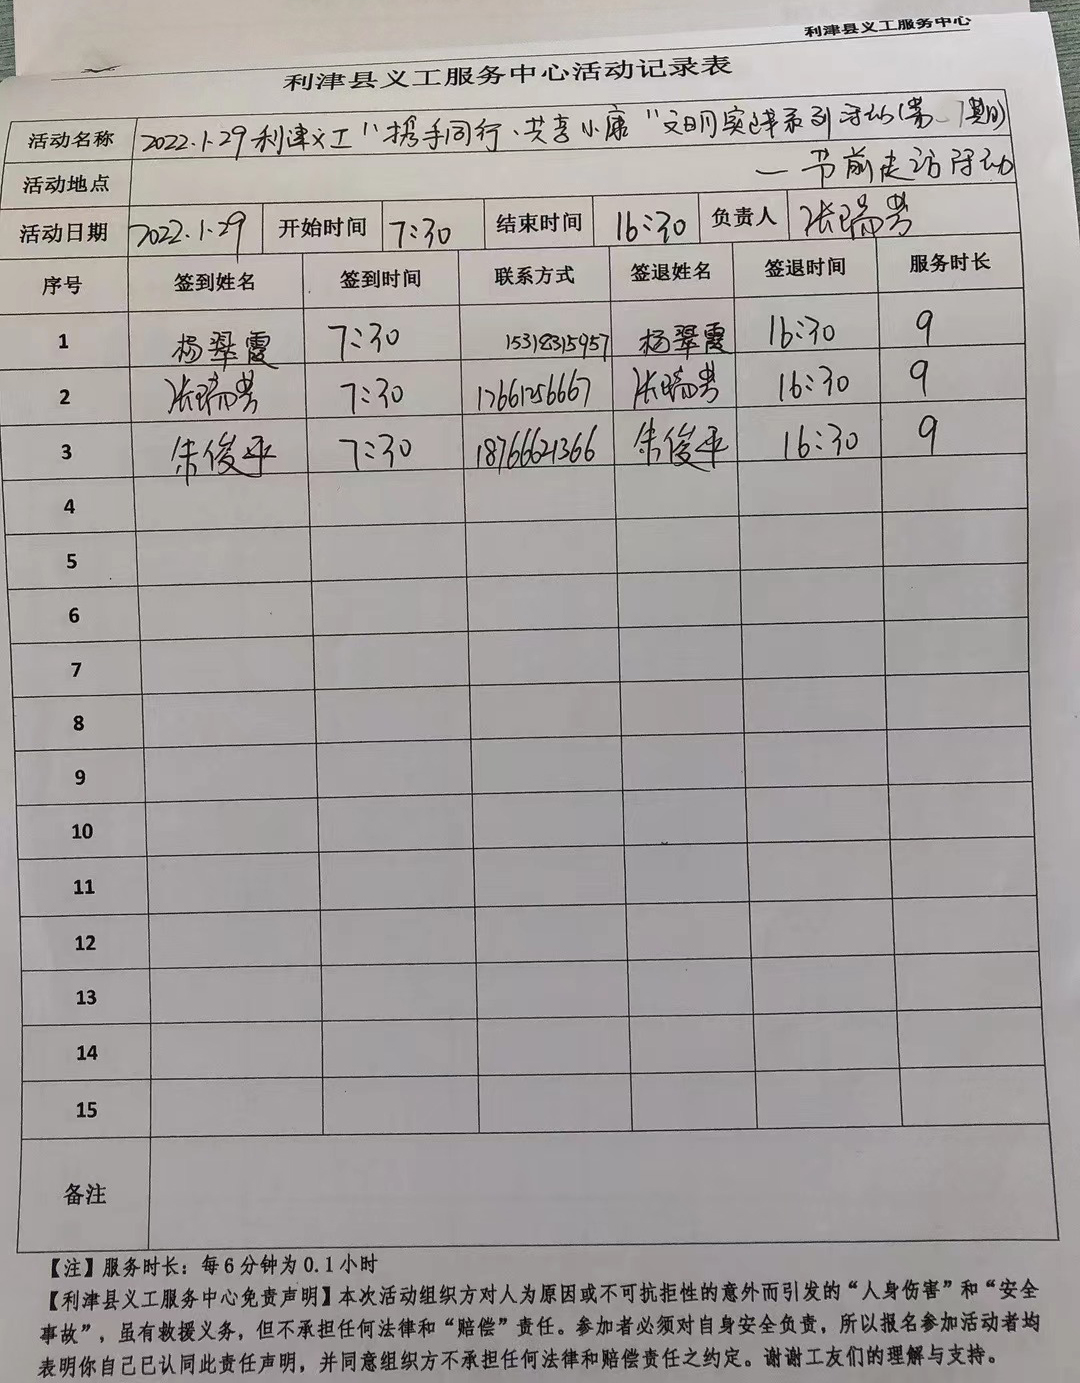 利津县义工服务中心
利津县义工服务中心活动记录表
活动名称 2022.1.29利津义工“携手同行、共享小康”文明实践系列活动(第 期)
活动地点 —节前走访活动
活动日期 2022.1.29 开始时间 7:30 结束时间 16:30 负责人 张瑞芳
序号 签到姓名 签到时间 联系方式 签退姓名 签退时间 服务时长
1 杨翠霞 7:30 15318315957 杨翠霞 16:30 9
2 张瑞芳 7:30 17661256667 张瑞芳 16:30 9
3 朱俊平 7:30 18766621366 朱俊平 16:30 9
4
5
6
7
8
9
10
11
12
13
14
15
备注
【注】服务时长：每6分钟为0.1小时
【利津县义工服务中心免责声明】本次活动组织方对人为原因或不可抗拒性的意外而引发的“人身伤害”和“安全
事故”，虽有救援义务，但不承担任何法律和“赔偿”责任。参加者必须对自身安全负责，所以报名参加活动者均
表明你自己已认同此责任声明，并同意组织方不承担任何法律和赔偿责任之约定。谢谢工友们的理解与支持。